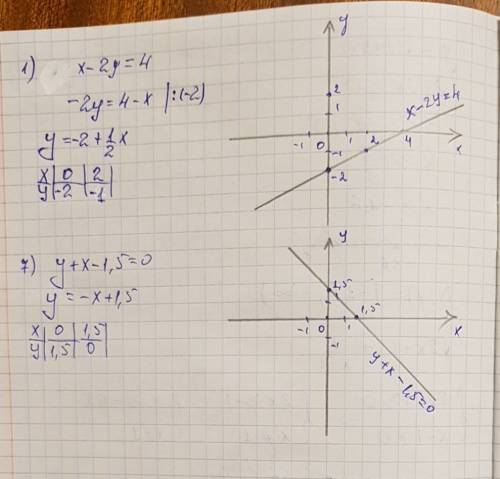 1) x-2y=4
-2y=4-x |:(-2)
y=-2+1/2x
x | 0 | 2 |
y | -2 | -1 |
y
2
1
x-2y=4
-1 0 1 2 4 x
-1
-2
7) y+x-1,5=0
y=-x+1,5
x | 0 | 1,5
y | 1,5 | 0
y
1,5
1
1,5
-1 0 1 x
-1
y+x-1,5=0